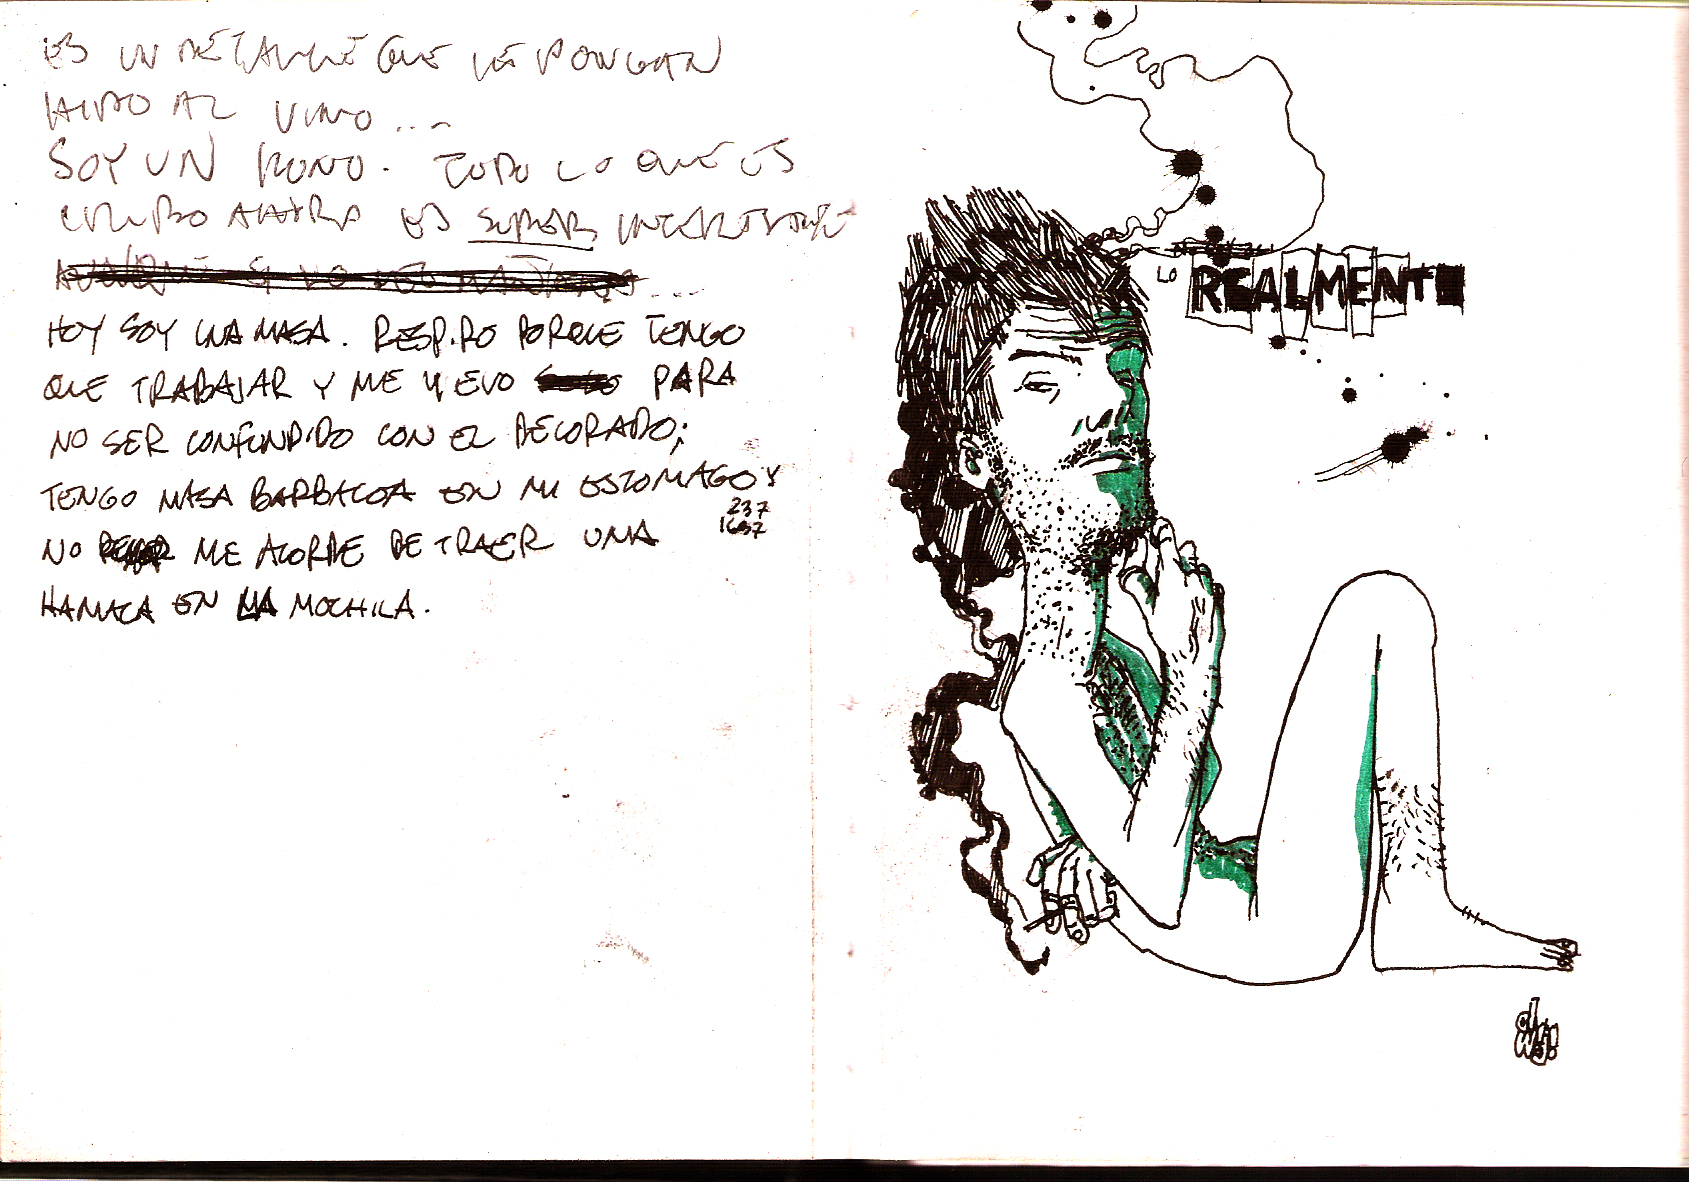 ES UN DETALLE QUE LE PONGAN
HIELO AL VINO...
SOY UN MONO. TODO LO QUE ES
AHORA ES SUPER
HOY SOY UNA MASA. RESPIRO PORQUE TENGO
QUE TRABAJAR Y ME MUEVO PARA
NO SER CONFUNDIDO CON EL DECORADO;
TENGO MASA BARBACOA EN MI ESTOMAGO Y
237
1637
NO ME ACORDE DE TRAER UNA
HAMACA EN LA MOCHILA.
LO REALMENTE